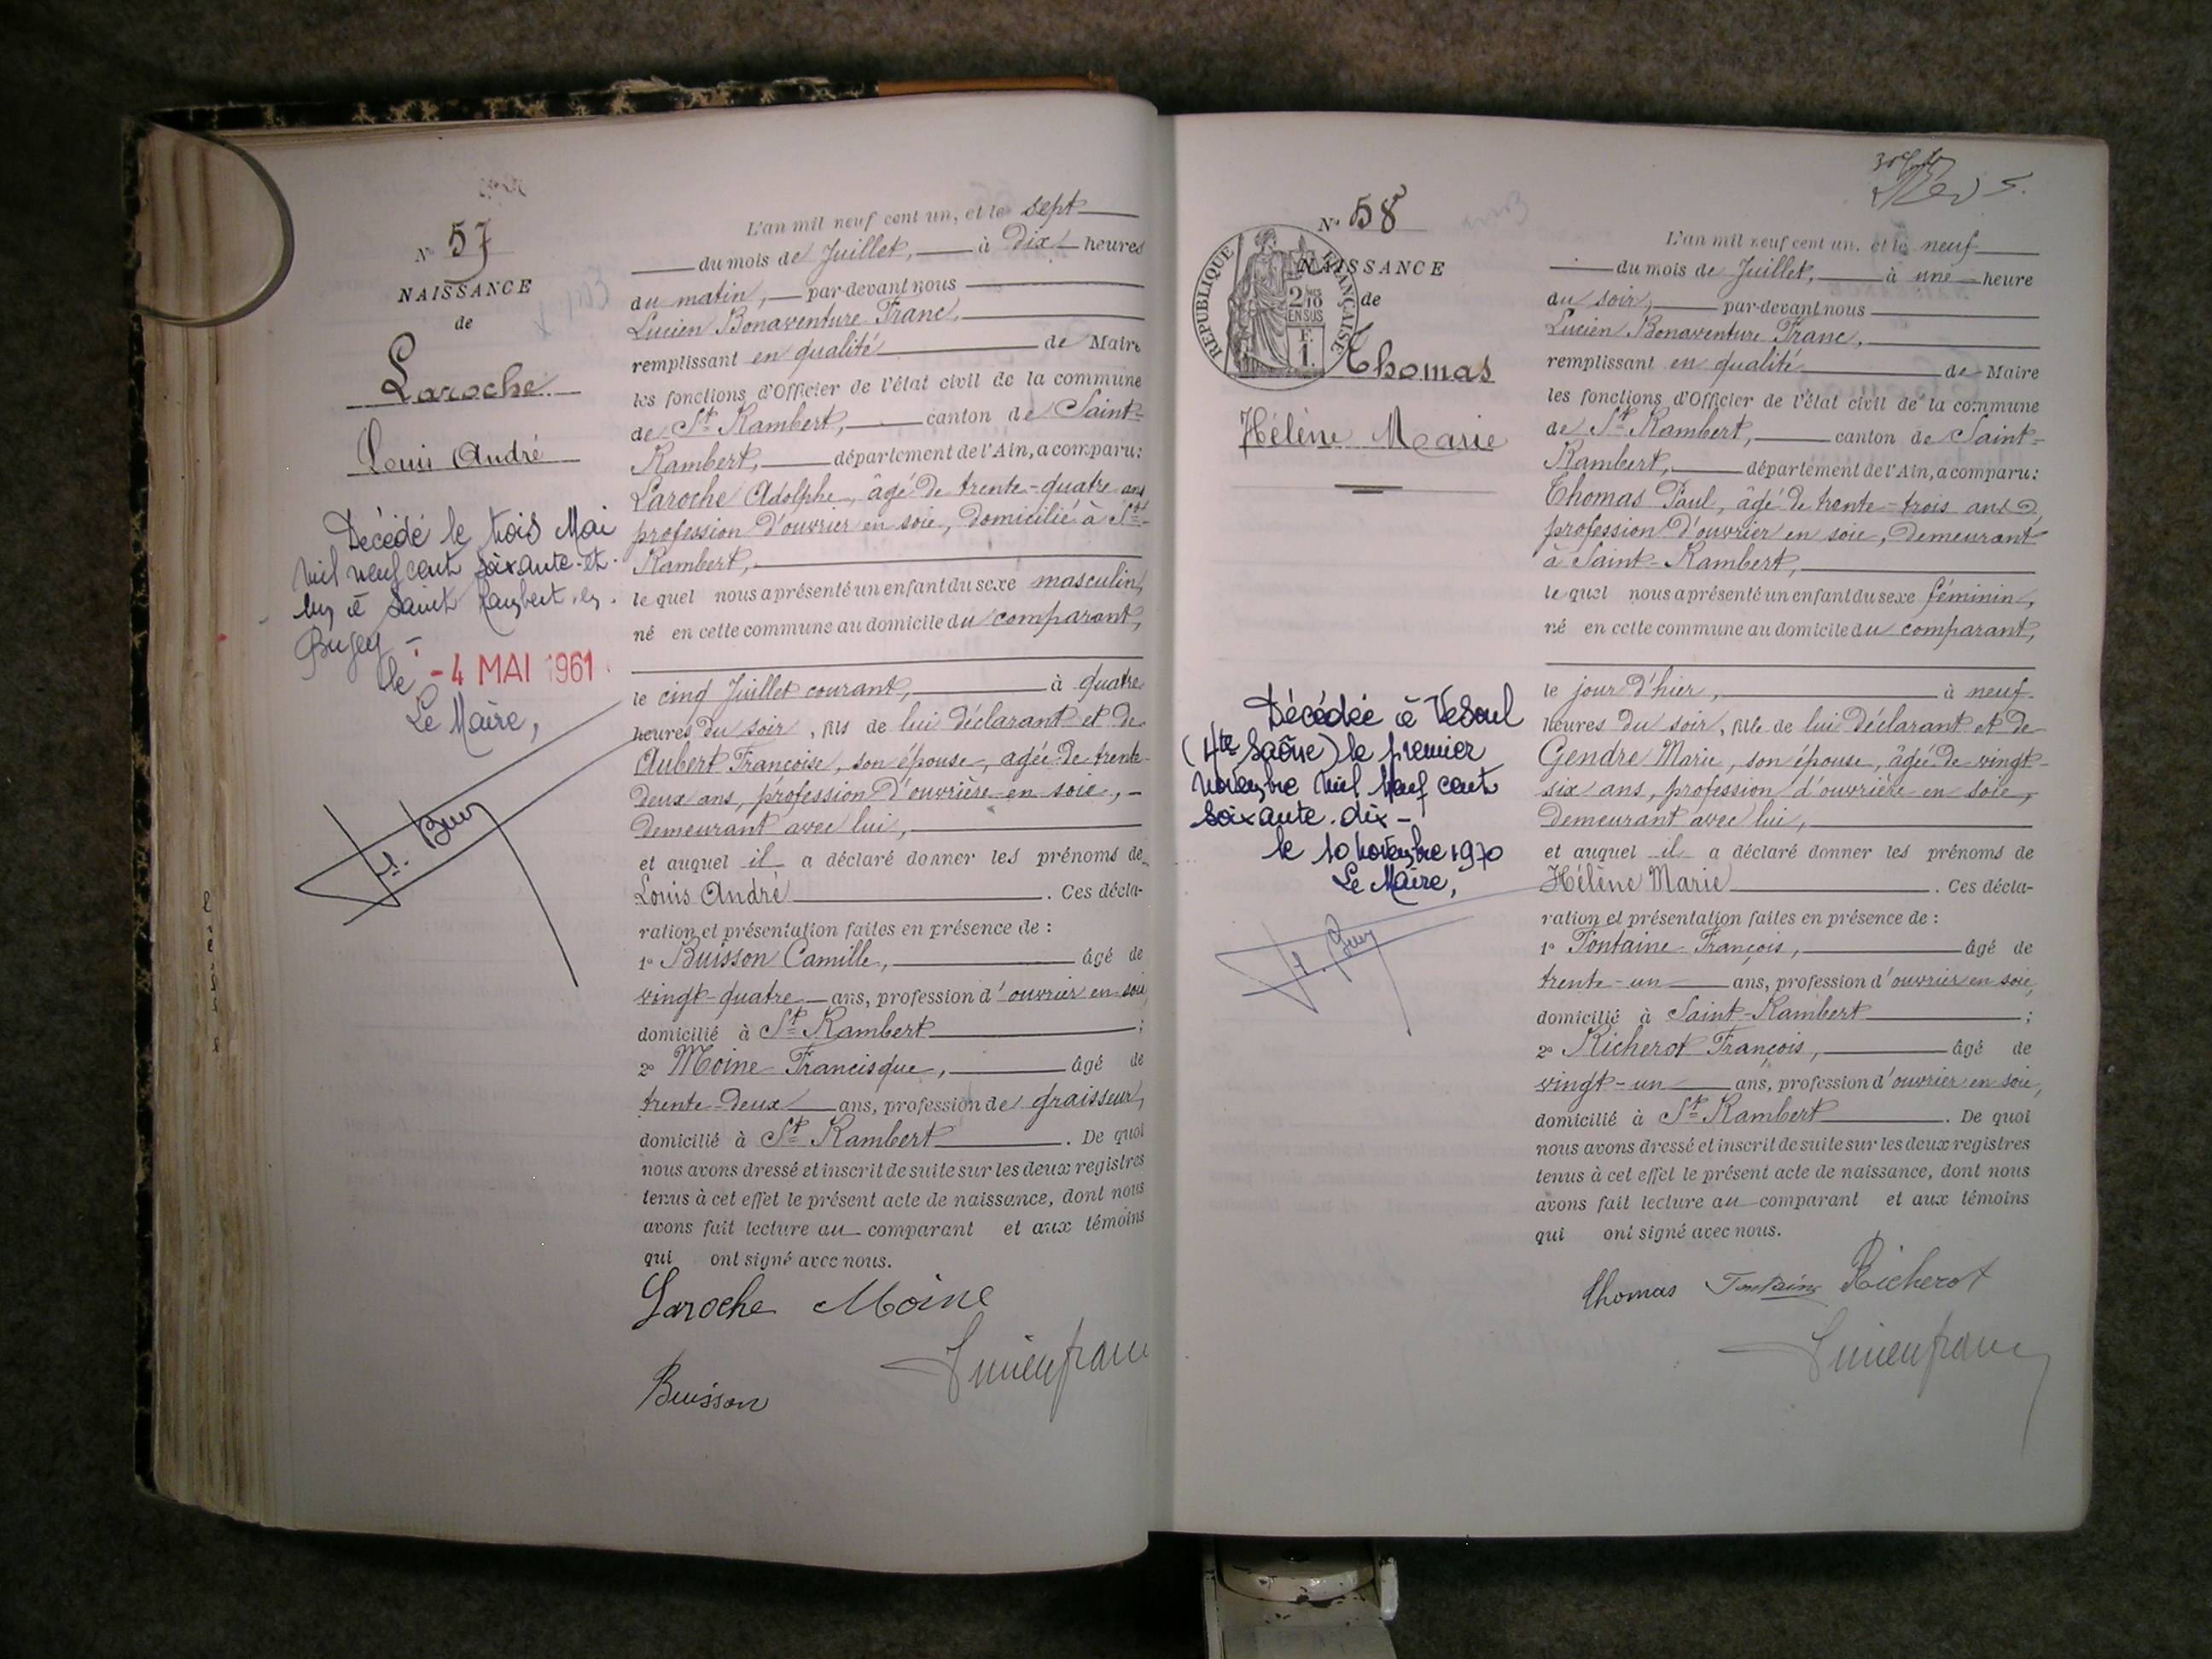 N° 57
NAISSANCE
de
Laroche
Louis André
Décédé le trois Mai
mil neuf cent soixante-et-
un à Saint Rambert-en-
Bugey -
le - 4 MAI 1961
Le Maire,
L'an mil neuf cent un, et le sept
du mois de Juillet, à dix heures
du matin, par-devant nous
Lucien Bonaventure Franc,
remplissant en qualité de Maire
les fonctions d'Officier de l'état civil de la commune
de St Rambert, canton de Saint-
Rambert, département de l'Ain, a comparu:
Laroche Adolphe, âgé de trente-quatre ans
profession d'ouvrier en soie, domicilié à St-
Rambert,
lequel nous a présenté un enfant du sexe masculin,
né en cette commune au domicile du comparant,
le cinq Juillet courant, à quatre
heures du soir, fils de lui déclarant et de
Aubert Françoise, son épouse, agée de trente-
deux ans, profession d'ouvrière en soie, -
demeurant avec lui,
et auquel il a déclaré donner les prénoms de
Louis André . Ces décla-
ration et présentation faites en présence de :
1° Buisson Camille, âgé de
vingt-quatre ans, profession d'ouvrier en soie
domicilié à St Rambert ;
2° Moine Francisque, âgé de
trente-deux ans, profession de graisseur,
domicilié à St Rambert . De quoi
nous avons dressé et inscrit de suite sur les deux registres
tenus à cet effet le présent acte de naissance, dont nous
avons fait lecture au comparant et aux témoins
qui ont signé avec nous.
Laroche Moine
Buisson Lucien franc
N° 58
REPUBLIQUE FRANÇAISE
2/10 EN SUS
F. 1.
NAISSANCE
de
Thomas
Hélène Marie
Décédée à Vesoul
(Hte Saône) le premier
novembre mil neuf cent
soixante-dix -
le 10 novembre 1970
Le Maire,
L'an mil neuf cent un, et le neuf
du mois de Juillet, à une heure
du soir, par-devant nous
Lucien Bonaventure Franc,
remplissant en qualité de Maire
les fonctions d'Officier de l'état civil de la commune
de St Rambert, canton de Saint-
Rambert, département de l'Ain, a comparu:
Thomas Paul, âgé de trente-trois ans
profession d'ouvrier en soie, demeurant
à Saint-Rambert,
lequel nous a présenté un enfant du sexe féminin,
né en cette commune au domicile du comparant,
le jour d'hier, à neuf
heures du soir, fille de lui déclarant et de
Gendre Marie, son épouse, âgée de vingt-
six ans, profession d'ouvrière en soie,
demeurant avec lui,
et auquel il a déclaré donner les prénoms de
Hélène Marie . Ces décla-
ration et présentation faites en présence de :
1° Fontaine François, âgé de
trente-un ans, profession d'ouvrier en soie,
domicilié à Saint-Rambert ;
2° Richerot François, âgé de
vingt-un ans, profession d'ouvrier en soie,
domicilié à St Rambert . De quoi
nous avons dressé et inscrit de suite sur les deux registres
tenus à cet effet le présent acte de naissance, dont nous
avons fait lecture au comparant et aux témoins
qui ont signé avec nous.
Thomas Fontaine Richerot
Lucien franc